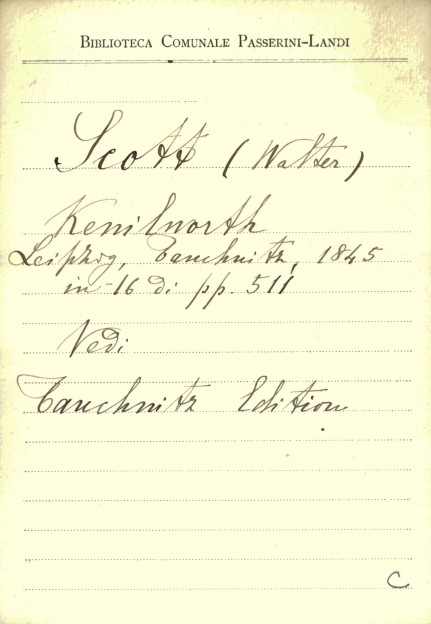 BIBLIOTECA COMUNALE PASSERINI-LANDI
Scott (Walter)
Kenilworth
Leipzig, Tauchnitz, 1845
in-16 di pp. 511
Vedi
Tauchnitz Edition
C